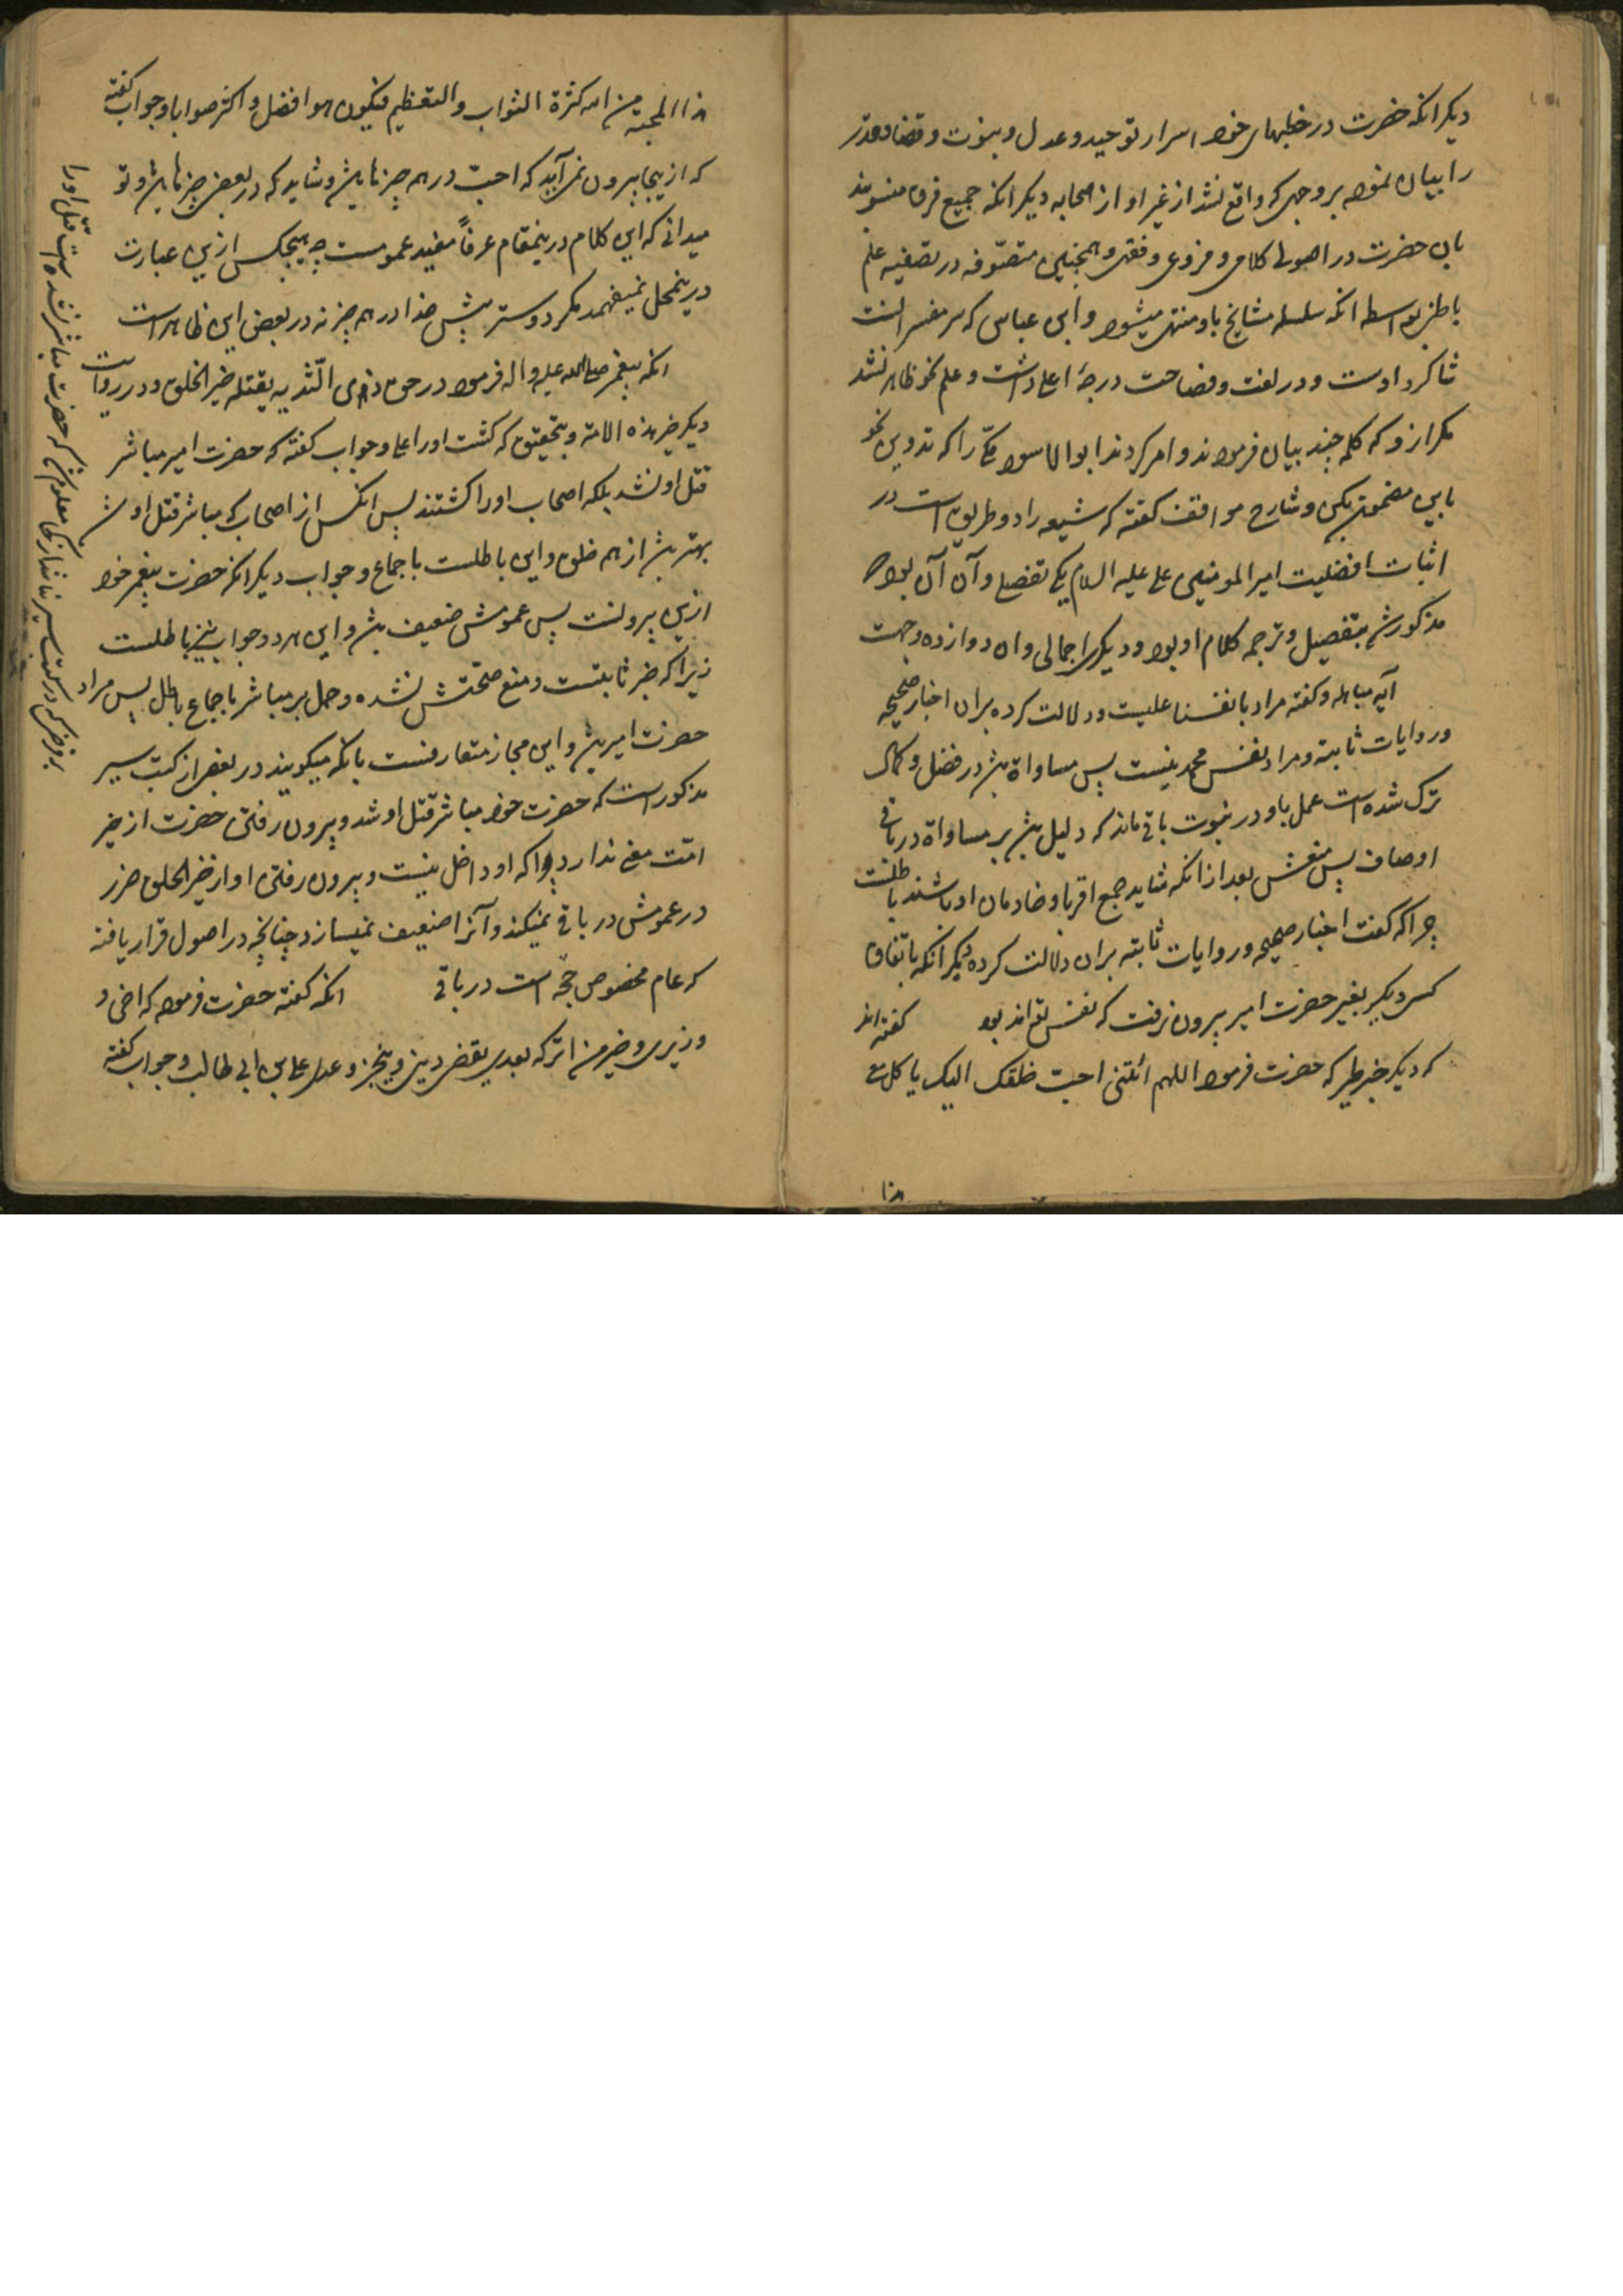 دیکر انکه حضرت در خطبهای خود اسرار توحید و عدل و نبوت و قضا و قدر
را بیان نموده بر وجهی که واقع نشد از غیر او از صحابه دیکر انکه جمیع فرق منسوبند
بان حضرت در اصول کلامی و فروع و فقهی و همچنین متصوفه در تصفیه علم
باطن بواسطه انکه سلسله مشایخ باو منتهی میشود و ابن عباس که سر مفسرانست
شاکرد اوست و در لغت و فصاحت درجهٔ اعلا داشت و علم نحو ظاهر نشد
مکر ازو که کلمه چند بیان فرمودند و امر کردند ابوالاسود را که تدوین نحو
باین مضمون بکن و شارح مواقف کفته که شیعه را دو طریق است در
اثبات افضلیت امیر المومنین علی علیه السلام یکی تفصیلی و آن آن بود که
مذکور شد بتفصیل و ترجمه کلام او بود و دیکر اجمالی و ان دوازده وجهست
آیه مباهله و کفته مراد بانفسنا علیست و دلالت کرده بران اخبار صحیحه
و روایات ثابته و مراد نفس محمد نیست پس مساواة بشد در فضل و کمال
ترک شده است عمل باو در نبوت باقی ماند که دلیل بشد بر مساواة در باقی
اوصاف پس منعش بعد از انکه شاید جمع اقربا و خادمان او باشند باطلست
چرا که کفت اخبار صحیحه و روایات ثابته بران دلالت کرده دیکر انکه باتفاق
کسی دیکر بغیر حضرت امیر بیرون نرفت که نفس تواند بود کفته اند
که دیکر خبر طیر که حضرت فرمود اللهم ائتنی احب خلقک الیک یاکل معی
هذا
هذا المحبة من الله کثرة الثواب و التعظیم فیکون هو افضل و اکثر صوابا و جواب کفته
که ازینجا بیرون نمی آید که احب در همه چیزها بشد و شاید که در بعضی چیزها بشد و تو
میدانی که این کلام درینمقام عرفاً مفید عمومست چه هیچکس ازین عبارت
درینمحل نمیفهمد مکر دوستر پیش خدا در همه چیز نه در بعض این ظاهر است
انکه پیغمبر صلی الله علیه و اله فرمود در حق ذوی الثدیه یقتله خیر الخلق و در روایت
دیکر خیر هذه الامة و بتحقیق که کشت او را علی و جواب کفته که حضرت امیر مباشر
قتل او نشد بلکه اصحاب او را کشتند پس انکس از اصحاب که مباشر قتل او شد
بهتر بشد از همه خلق و این باطلست باجماع و جواب دیکر انکه حضرت پیغمبر خود
ازین بیرونست پس عمومش ضعیف بشد و این هر دو جواب نیز باطلست
زیرا که خبر ثابتست و منع صحتش نشده و حمل بر مباشر باجماع باطل پس مراد
حضرت امیر بشد و این مجاز متعارفست بانکه میکویند در بعضی از کتب سیر
مذکور است که حضرت خود مباشر قتل او شد و بیرون رفتن حضرت از خیر
امت معنی ندارد چرا که او داخل نیست و بیرون رفتن او از خیر الخلق ضرر
در عمومش در باقی نمیکند و آنرا ضعیف نمیسازد چنانچه در اصول قرار یافته
که عام مخصوص حجة است در باقی انکه کفته حضرت فرمود که اخی و
وزیری و خیر من اترکه بعدی یقضی دینی و ینجز وعدی علی بن ابی طالب و جواب کفته
بر فرض که در کتب سیر نباشد از کجا معلوم شد که حضرت مباشر نشده است قتل او را